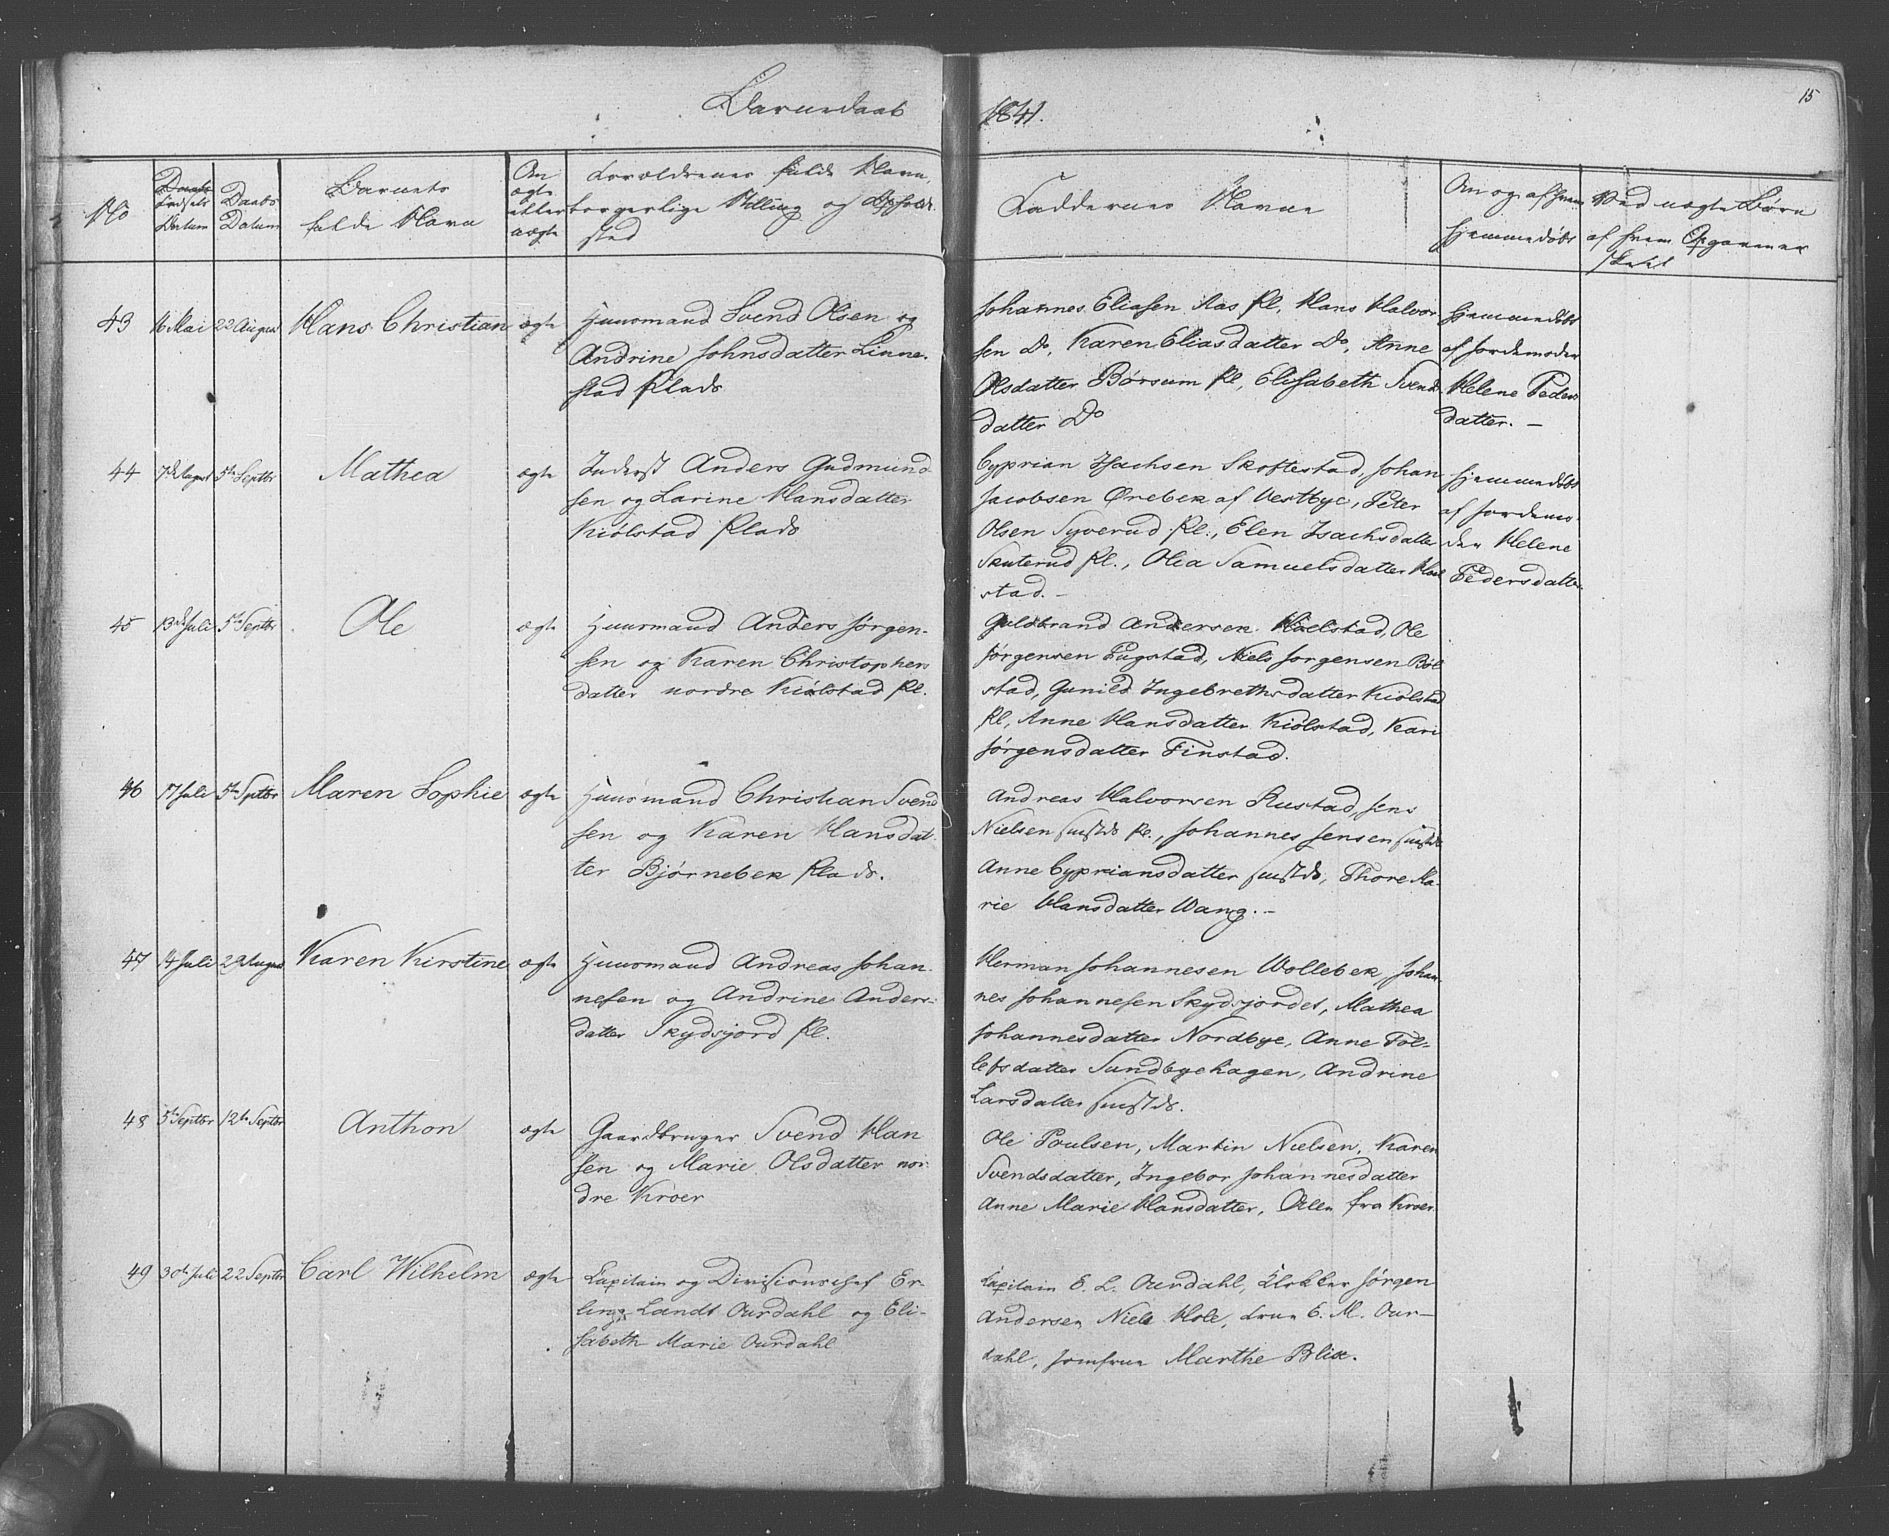 Barnedaab
1841.
15
No
Fødsels Datum
Daabs Datum
Barnets fulde Navn
Om ægte eller uægte
Forældrenes fulde Navn, borgerlige Stilling og Opholdssted
Faddernes Navne
Om og af hvem hjemmedøbt
Ved uægte Børn af hvem Opgavene skeet
43 16 Mai 22 August Hans Christian ægte
Huusmand Svend Olsen og
Andrine Johnsdatter Linne-
stad Plads
Johannes Eliasen Aas Pl, Hans Halvor
sen Do, Karen Eliasdatter Do, Anne
Olsdatter Børsum Pl, Elisabeth Svends
datter Do
hjemmedøbt
af Jordemoder
Helene Peders
datter. —
44 7de August 5te Septbr Mathea ægte
Inderst Anders Gudmund
sen og Larine Hansdatter
Kiølstad Plads
Cyprian Isachsen Skoftestad, Johan
Jacobsen Ørebek af Vestbye, Peter
Olsen Syverud Pl., Elen Isachsdatter
Skuterud Pl., Olea Samuelsdatter
stad. —
hjemmedøbt
af Jordemo-
der Helene
Pedersdatter
45 13de Juli 5te Septbr Ole ægte
Huusmand Anders Jørgen-
sen og Karen Christophers
datter nordre Kiølstad Pl.
Guldbrand Andersen Kiølstad, Ole
Jørgensen Fugstad, Niels Jørgensen Bøl
stad, Gunild Ingebrethsdatter Kiølstad
Pl, Anne Hansdatter Kiølstad, Kari
Jørgensdatter Finstad.
46 17 Juli 5te Septbr Maren Sophie ægte
Huusmand Christian Svend
sen og Karen Hansdat-
ter Bjørnebek Plads.
Andreas Halvorsen Rustad, Jens
Nielsen sustds Pl., Johannes Jensen sustds
Anne Cypriansdatter sustds, Thore Ma-
rie Hansdatter Wang. —
47 14 Juli 29 August Karen Kirstine ægte
Huusmand Andreas Johan-
nesen og Andrine Anders-
datter Skydsjord Pl.
Herman Johannesen Wollebek, Johan
nes Johannesen Skydsjordet, Mathea
Johannesdatter Nordbye, Anne Tol-
lefsdatter Sundbyehagen, Andrine
Larsdatter sustds.
48 5te Septbr 12te Septbr Anthon ægte
Gaardbruger Svend Han
sen og Marie Olsdatter nor-
dre Kroer
Ole Poulsen, Martin Nielsen, Karen
Svendsdatter, Ingebor Johannesdatter
Anne Marie Hansdatter, Alle fra Kroer.
49 30te Juli 22 Septbr Carl Wilhelm ægte
Capitain og Divisionschef Er-
ling Landt Ourdahl og Eli-
sabeth Marie Ourdahl
Capitain E. L. Ourdahl, Klokker Jørgen
Andersen, Niels Hole, Frue E. M. Our-
dahl, Jomfrue Marthe Blix.